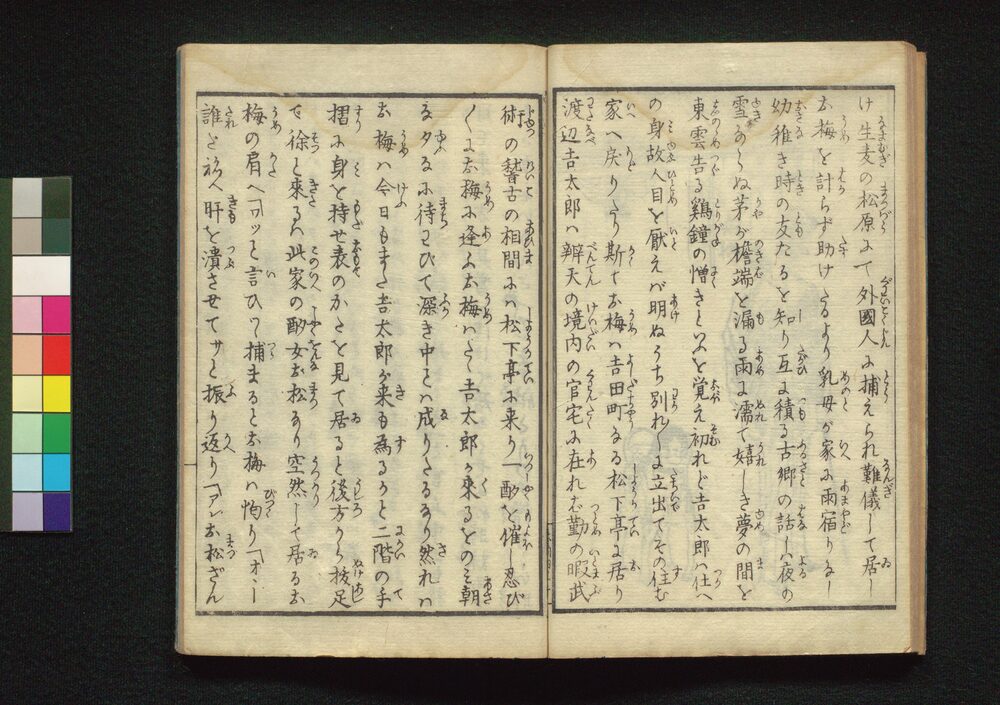 け生麦の松原にて外國人に捕えられ難儀して居し
お梅を計らず助けたるより乳母が家に雨宿りなし
幼稚き時の友たるを知り互に積る古郷の話しハ夜の
雪ならぬ茅が檐端を漏る雨に濡て嬉しき夢の間を
東雲告る鶏鐘の憎きといふを覚え初れど吉太郎ハ仕へ
の身故人目を厭えバ明ぬうち別れしに立出てその住む
家へ戻りたり斯てお梅ハ吉田町なる松下亭に居り
渡辺吉太郎ハ辨天の境内の官宅に在れバ勤の暇武
術の稽古の相間にハ松下亭に来り一酌を催し忍び
〳〵にお梅に逢ふお梅ハたゞ吉太郎が来るをのミ朝
な夕なに待わびて深き中とハ成りたるなり然れハ
お梅ハ今日もまた吉太郎が来も為るかと二階の手
摺に身を持せ表のかたを見て居ると後方から抜足
で徐と来るハ此家の酌女お松なり空然して居るお
梅の肩へワツと言ひつ捕まるとお梅ハ恟りヲヽ
誰だ初へ肝を潰させてサと振り返りアレお松ざん